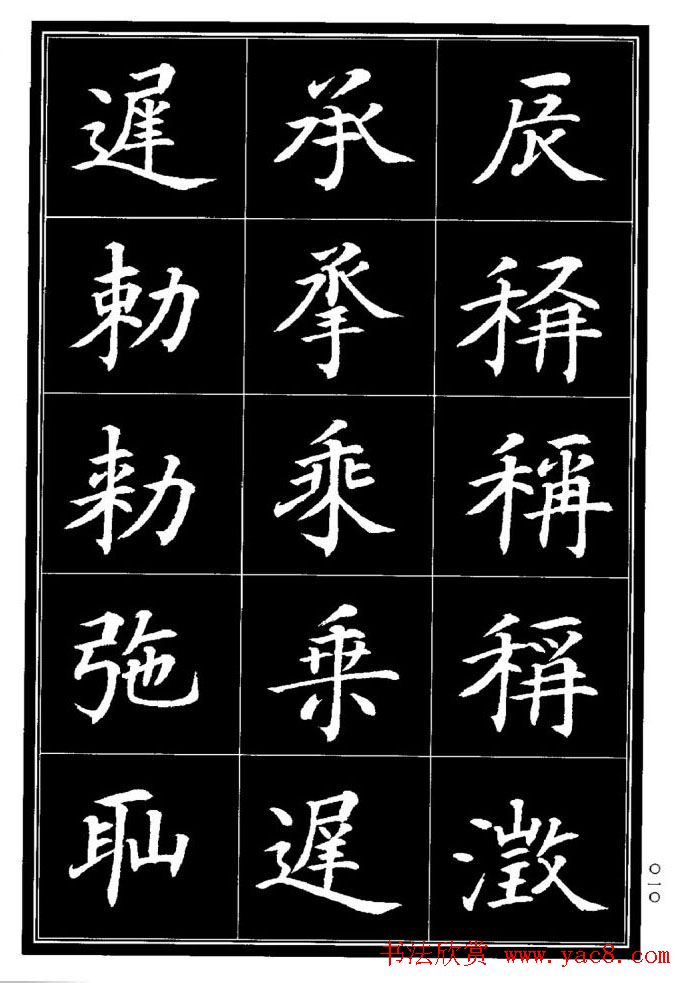 辰稱稱稱澂
承承乘乗遲
遲勅勑㢮耻
〇一〇
书法欣赏 www.yac8.com